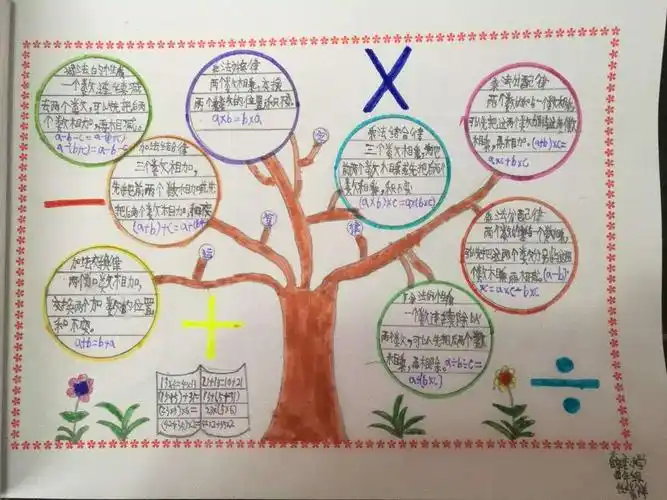 减法的性质
一个数连续减
去两个数,可以先把后两
个数相加,再相减。
a-b-c=a-(b+c)
a-(b+c)=a-b-c
乘法交换律
两个数相乘,交换
两个乘数的位置,积不变。
a×b=b×a
×
乘法分配律
两个数的和与一个数相乘,
可以先把这两个数分别与这个数
相乘,再相加。(a+b)×c=
a×c+b×c
加法结合律
三个数相加,
先把前两个数相加或先
把后两个数相加,和不变
(a+b)+c=a+(b+c)
乘法结合律
三个数相乘,先把
前两个数相乘或先把后两个
数相乘,积不变
(a×b)×c=a×(b×c)
乘法分配律
两个数的差与一个数相乘,
可以先把这两个数分别与这
个数相乘,再相减。(a-b)
×c=a×c-b×c
定
算
律
运
-
加法交换律
两个加数相加,
交换两个加数的位置
和不变。
a+b=b+a
+
除法的性质
一个数连续除以
两个数,可以先把后两个数
相乘,再相除。a÷b÷c=
a÷(b×c)
÷